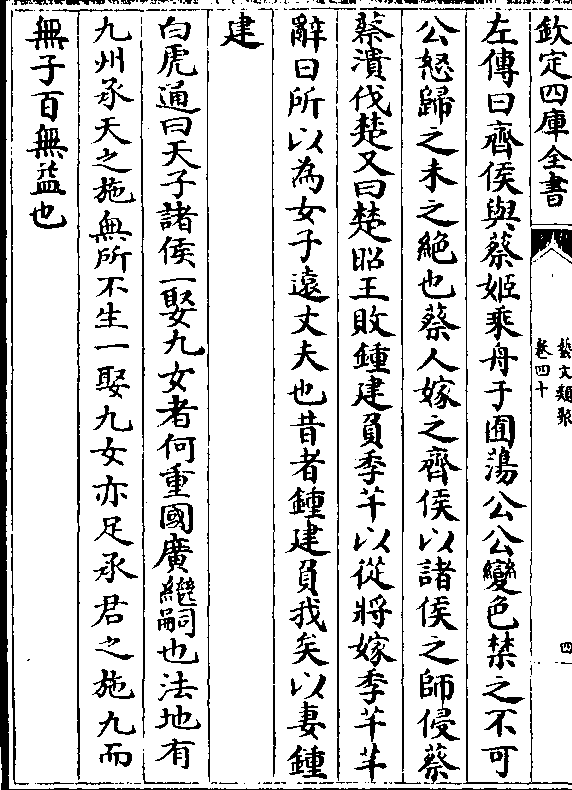 欽定四庫全書
藝文類聚
卷四十
四
左傳曰齊侯與蔡姬乘舟于囿蕩公公變色禁之不可
公怒歸之未之絕也蔡人嫁之齊侯以諸侯之師侵蔡
蔡潰伐楚又曰楚昭王敗鍾建負季芊以從將嫁季芊芊
辭曰所以為女子遠丈夫也昔者鍾建負我矣以妻鍾
建
白虎通曰天子諸侯一娶九女者何重國廣繼嗣也法地有
九州承天之施無所不生一娶九女亦足承君之施九而
無子百無益也